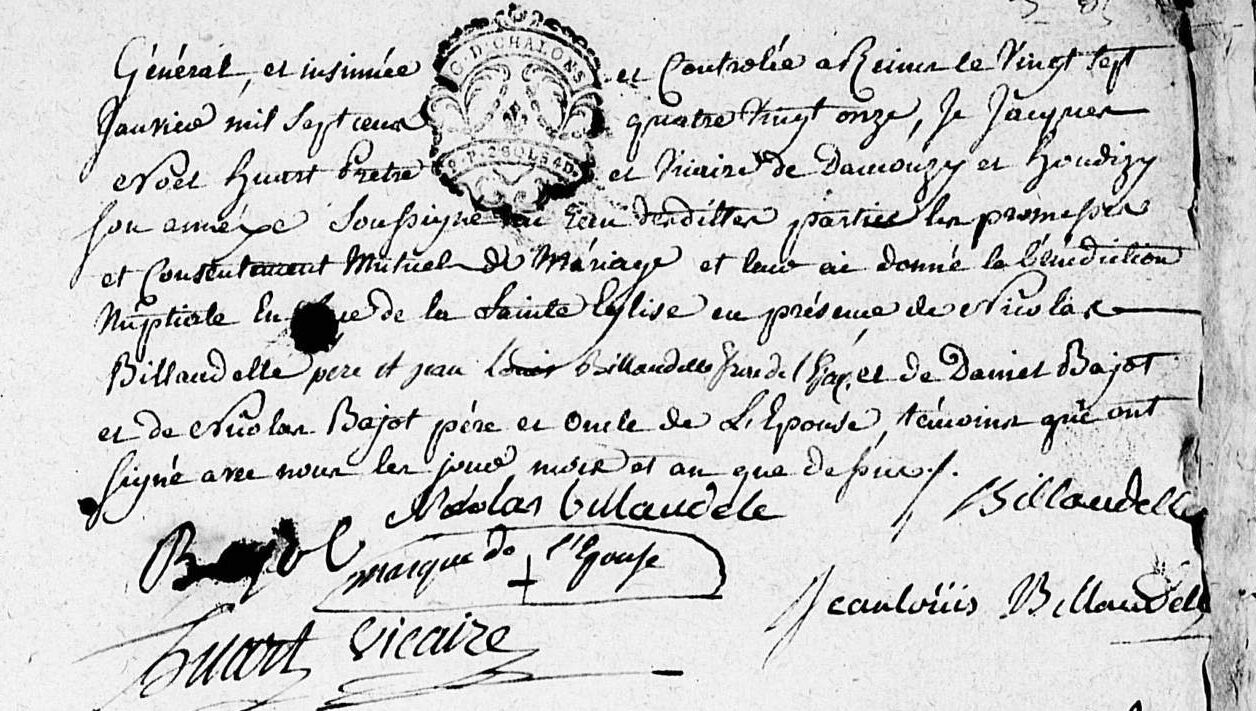 G. D. CHALONS
Général, et insinuée et Controlée a Reims le Vingt Sept
Janvier mil Sept cens quatre Vingt onze, Je Jacques
Noël Huart Prêtre et Vicaire de Damouzy et Houdizy
Son annéxe Soussigné ai desdittes parties les promesses
et Consentement Mutuel de Mariage et leur ai donné la bénédiction
Nuptiale En de la Sainte Eglise en présence de Nicolas
Billaudelle pere et jean Louis Billaudelle frere de et de Daniel Bajot
et de Nicolas Bajot pére et Oncle de L'Epouse, témoins qui ont
Signé avec nous les jour mois et an que dessus /.
Nicolas billaudele Billaudelle
marque de l'Epouse
Jean loüis Billaudelle
huart vicaire